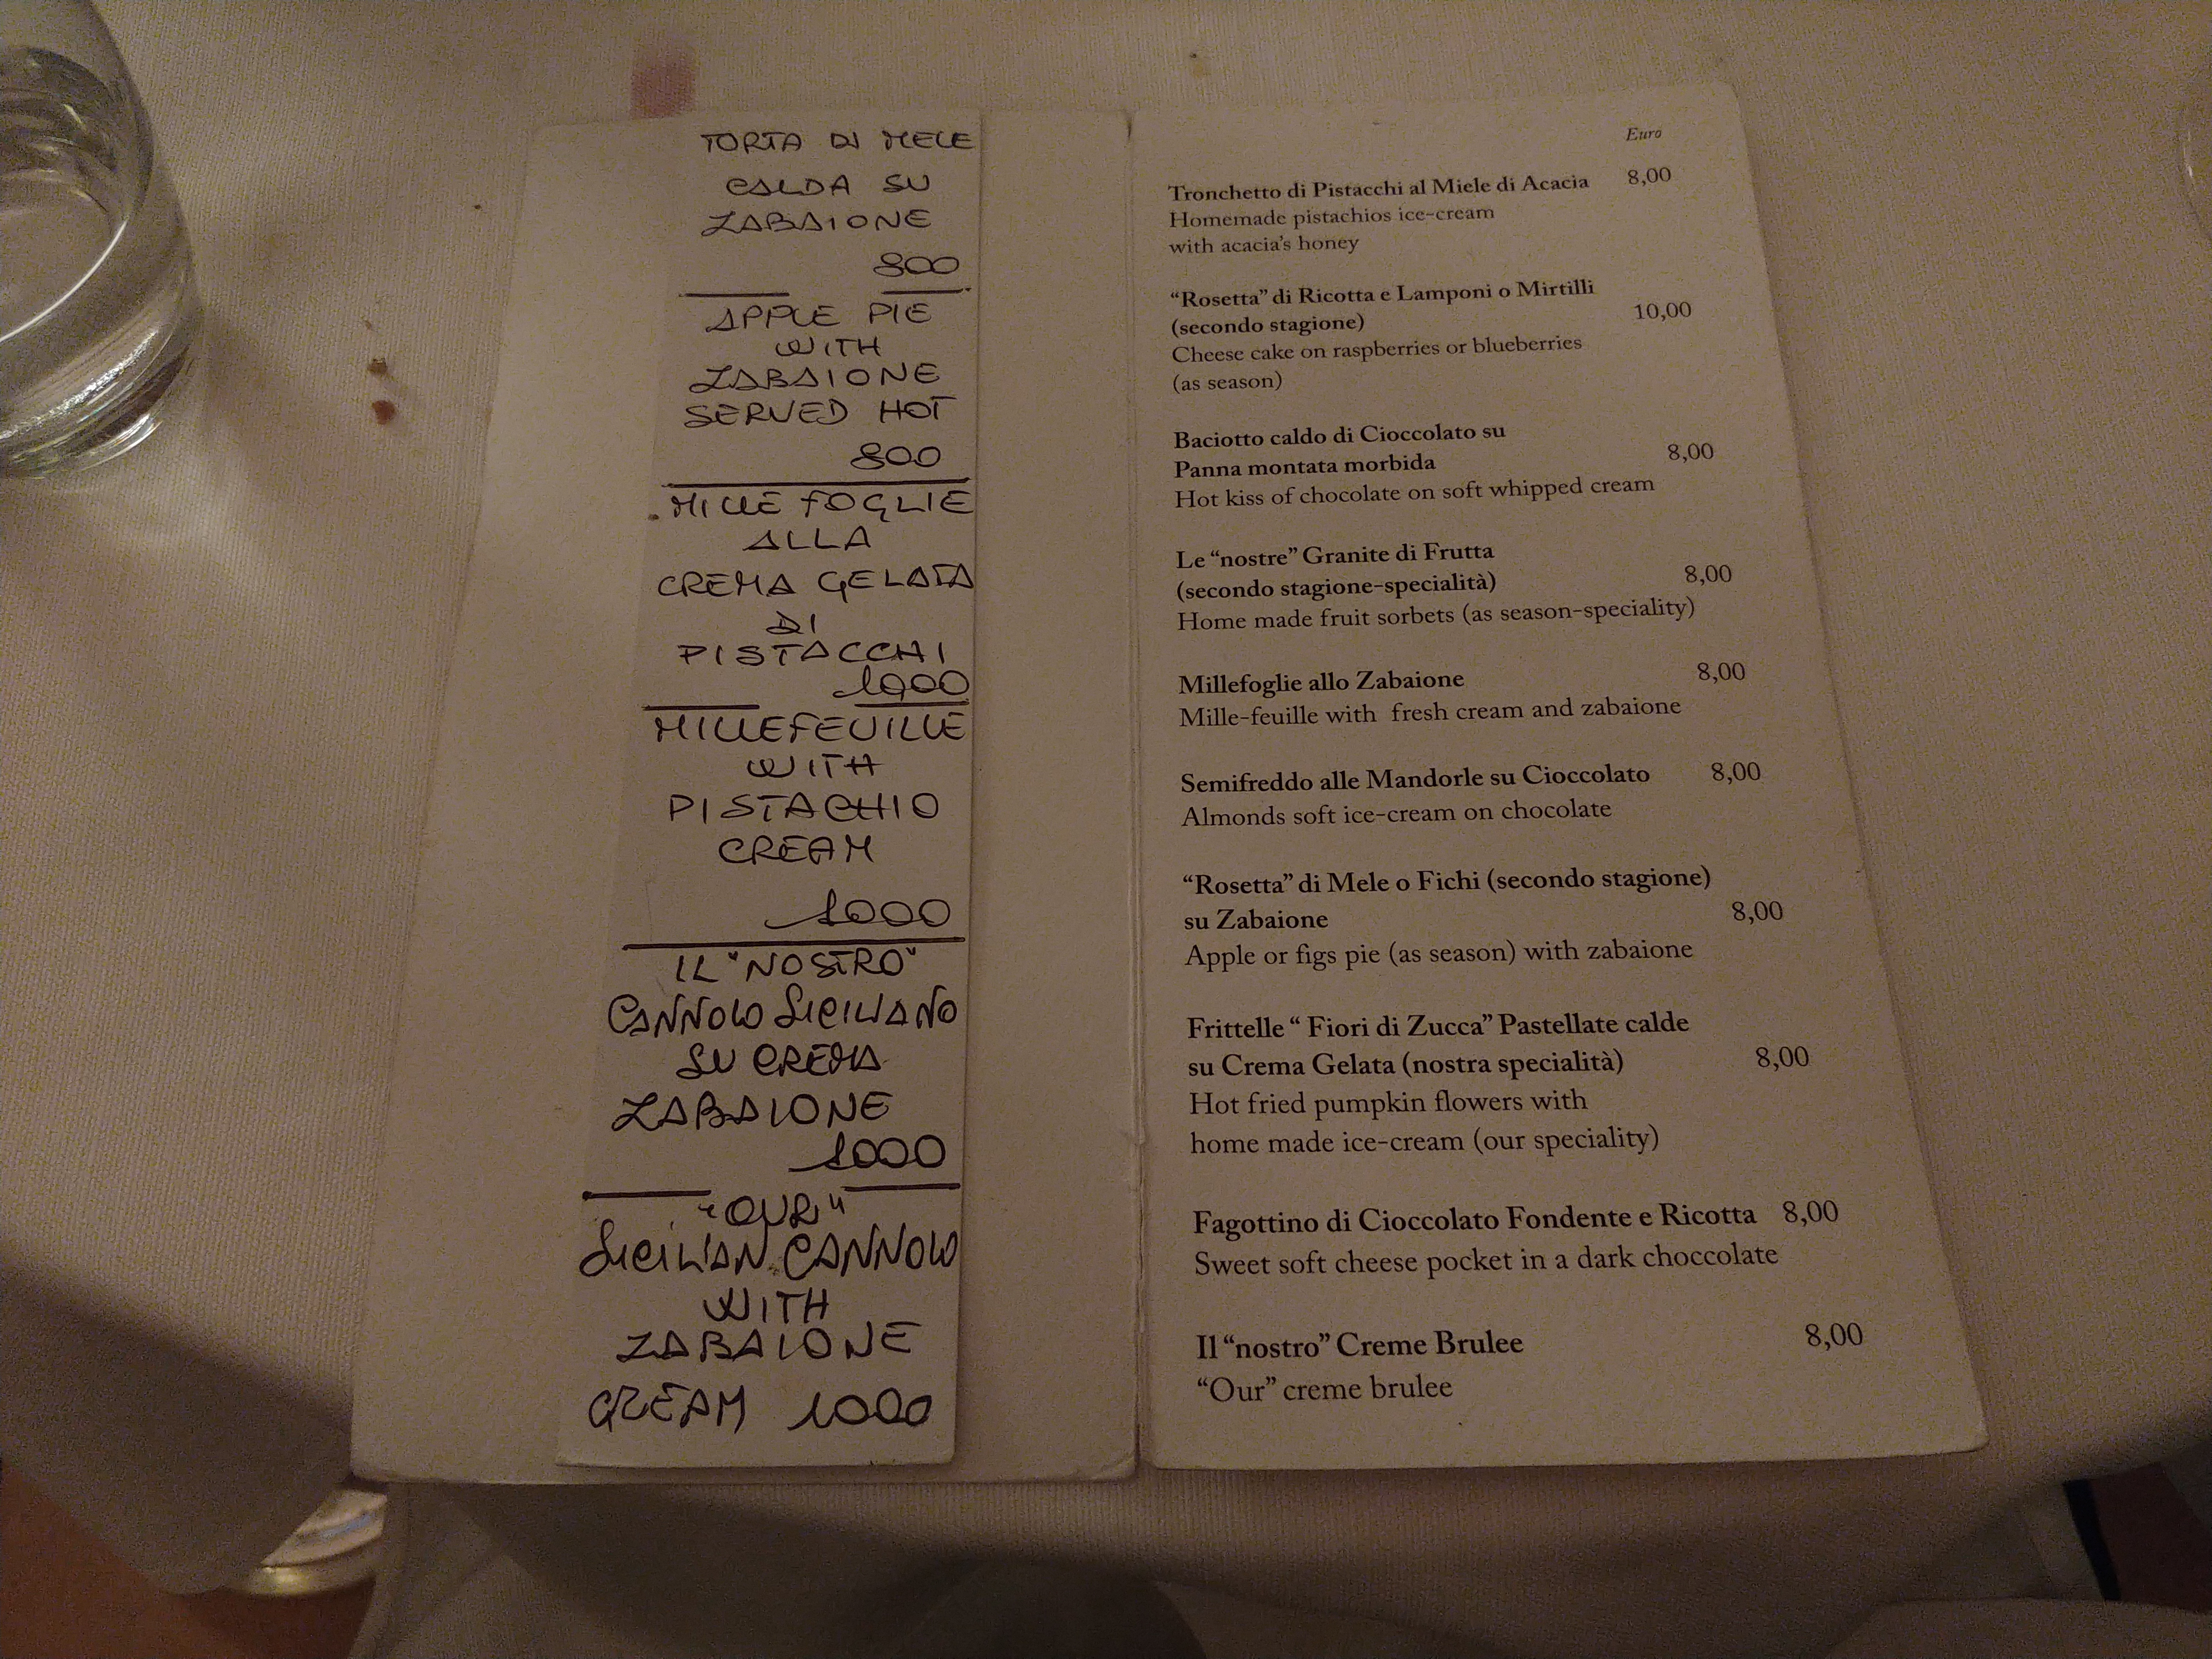 TORTA DI MELE
CALDA SU
ZABAIONE
800
APPLE PIE
WITH
ZABAIONE
SERVED HOT
800
MILLE FOGLIE
ALLA
CREMA GELATA
DI
PISTACCHI
1000
MILLEFEUILLE
WITH
PISTACHIO
CREAM
1000
IL "NOSTRO"
CANNOLO SICILIANO
SU CREMA
ZABAIONE
1000
"OUR"
SICILIAN CANNOLO
WITH
ZABAIONE
CREAM 1000
Euro
Tronchetto di Pistacchi al Miele di Acacia 8,00
Homemade pistachios ice-cream
with acacia's honey
“Rosetta” di Ricotta e Lamponi o Mirtilli
(secondo stagione) 10,00
Cheese cake on raspberries or blueberries
(as season)
Baciotto caldo di Cioccolato su
Panna montata morbida 8,00
Hot kiss of chocolate on soft whipped cream
Le “nostre” Granite di Frutta
(secondo stagione-specialità) 8,00
Home made fruit sorbets (as season-speciality)
Millefoglie allo Zabaione 8,00
Mille-feuille with fresh cream and zabaione
Semifreddo alle Mandorle su Cioccolato 8,00
Almonds soft ice-cream on chocolate
“Rosetta” di Mele o Fichi (secondo stagione)
su Zabaione 8,00
Apple or figs pie (as season) with zabaione
Frittelle “ Fiori di Zucca” Pastellate calde
su Crema Gelata (nostra specialità) 8,00
Hot fried pumpkin flowers with
home made ice-cream (our speciality)
Fagottino di Cioccolato Fondente e Ricotta 8,00
Sweet soft cheese pocket in a dark choccolate
Il “nostro” Creme Brulee 8,00
“Our” creme brulee